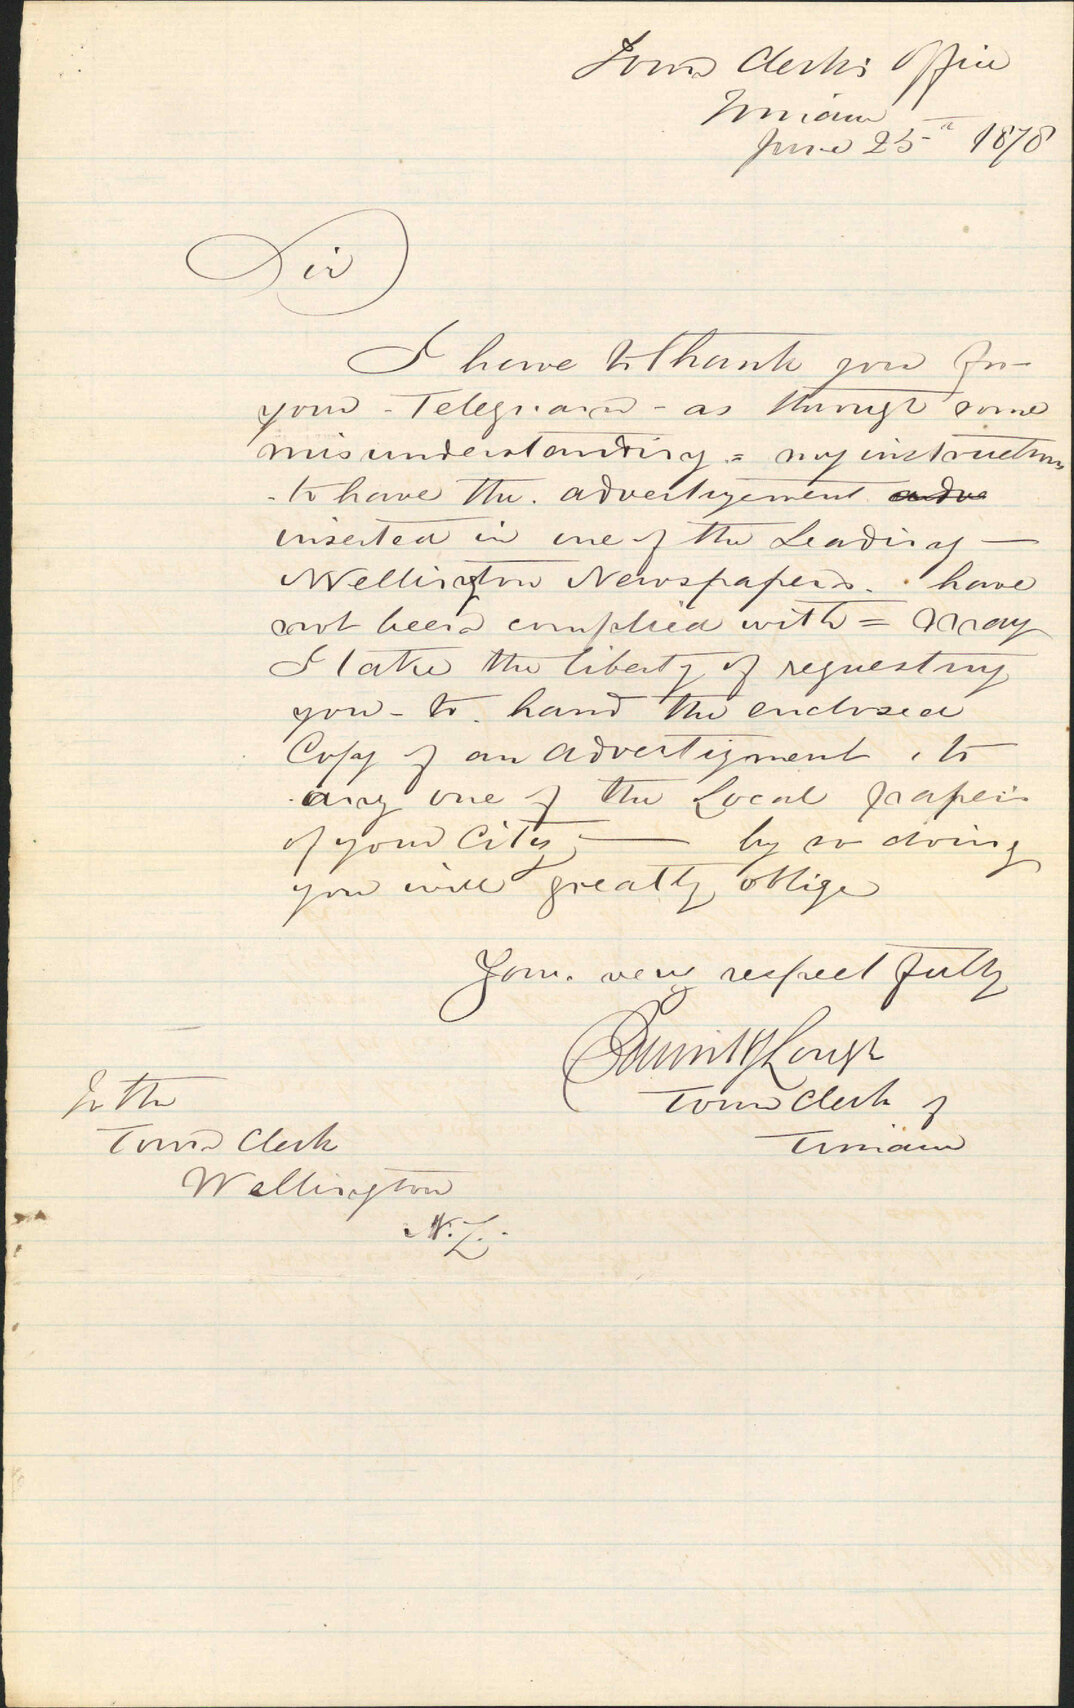 Town Clerk's Office
Timaru
June 25th 1878
Sir
I have to thank you for
your - Telegram - as through some
misunderstanding = my instructions
- to have the advertizement adve
inserted in one of the Leading —
Wellington Newspapers. have
not been complied with = May
I take the liberty of requesting
you - to hand the enclosed
Copy of an advertizment, to
any one of the Local papers
of your City, — by so doing
you will greatly oblige
Your very respectfully
Lough
Town Clerk of
Timaru
To the
Town Clerk
Wellington
N.Z.